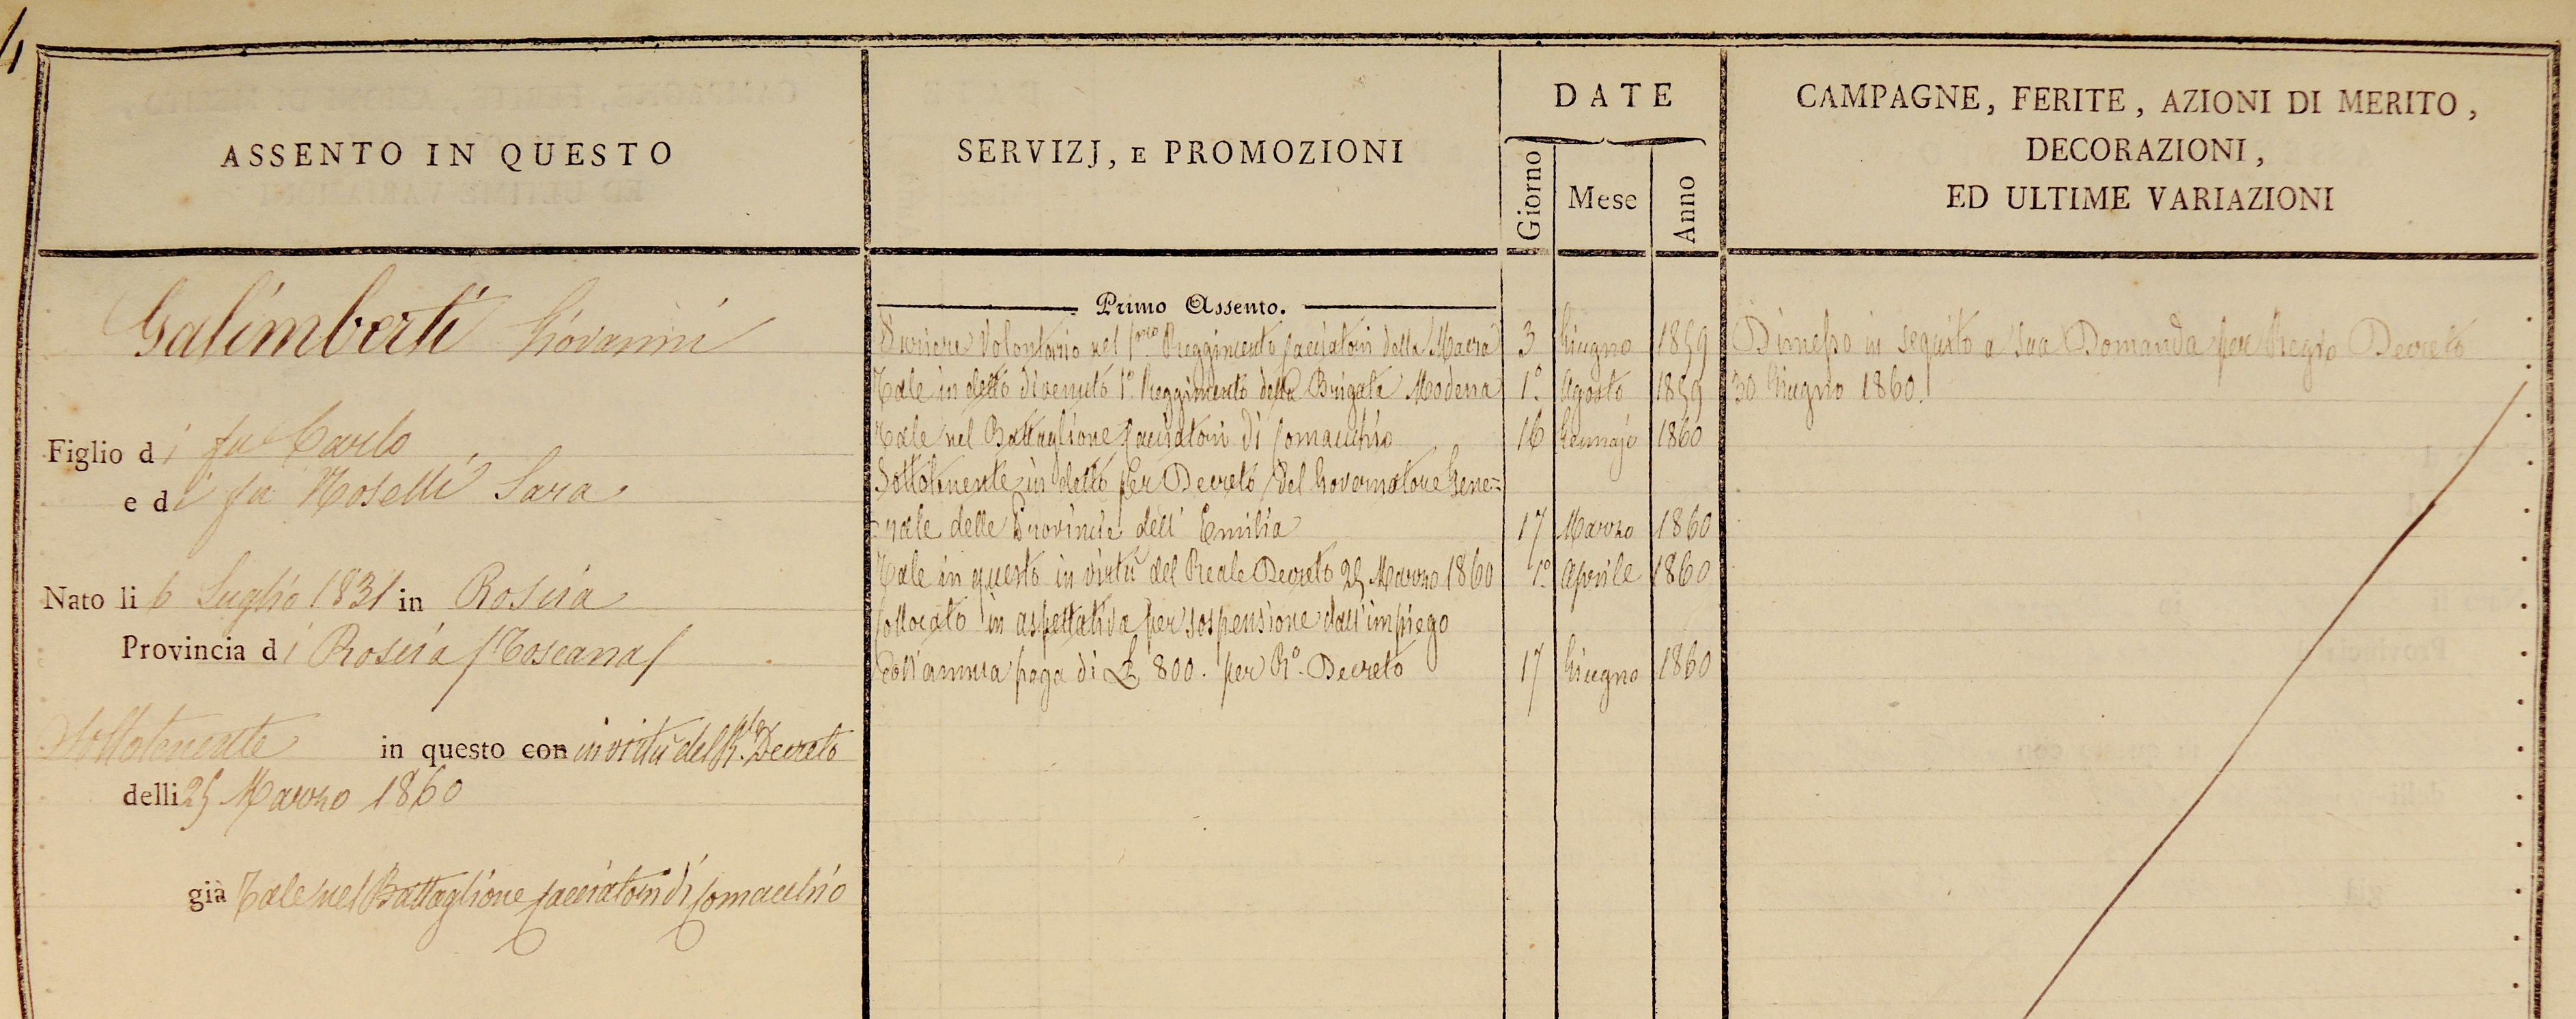 4
ASSENTO IN QUESTO
Galimberti Giovanni
Figlio di fu Carlo
e di fu Moselli Sara
Nato li 6 Luglio 1831 in Roscia
Provincia di Roscia /Toscana/
Sottotenente in questo con in virtù del R.le Decreto
delli 25 Marzo 1860
già Tale nel Battaglione Cacciatori di Comacchio
SERVIZJ, E PROMOZIONI
DATE
Giorno Mese Anno
Primo Assento.
Furiere Volontario nel 1mo Reggimento Cacciatori della Macra 3 Giugno 1859
Tale in detto divenuto 1.° Reggimento della Brigata Modena 1.° Agosto 1859
Tale nel Battaglione Cacciatori di Comacchio 16 Gennajo 1860
Sottotenente in detto per Decreto del Governatore Gene=
=rale delle Provincie dell' Emilia 17 Marzo 1860
Tale in questo in virtù del Reale Decreto 25 Marzo 1860 1.° Aprile 1860
Collocato in aspettativa per sospensione dall'impiego
coll'annua paga di L. 800. per R.° Decreto 17 Giugno 1860
CAMPAGNE, FERITE, AZIONI DI MERITO,
DECORAZIONI,
ED ULTIME VARIAZIONI
Dimesso in seguito a sua Domanda per Regio Decreto
30 Giugno 1860.